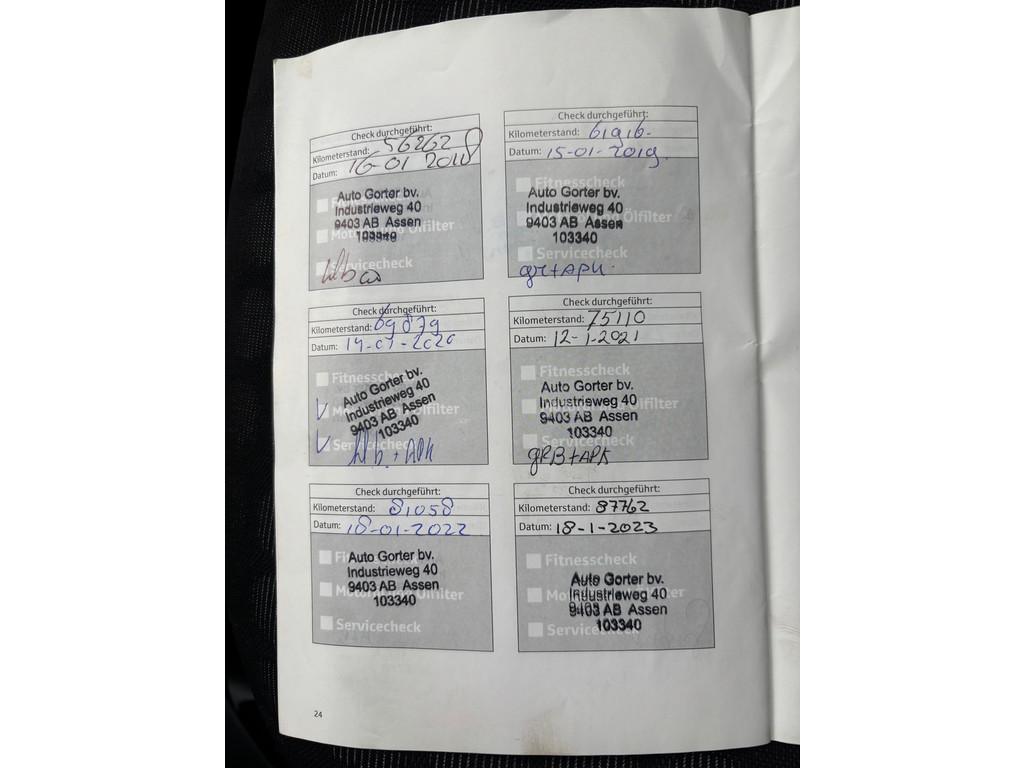 Check durchgeführt:
Kilometerstand: 56262
Datum: 16-01 2018
Auto Gorter bv.
Industrieweg 40
9403 AB Assen
103340
Ölfilter
Servicecheck
Check durchgeführt:
Kilometerstand: 61916-
Datum: 15-01-2019
Fitnesscheck
Auto Gorter bv.
Industrieweg 40
9403 AB Assen
Ölfilter
103340
Servicecheck
+APK
Check durchgeführt:
Kilometerstand: 69879
Datum: 14-01-2020
Fitnesscheck
Auto Gorter bv.
Industrieweg 40
9403 AB Assen
103340
Ölfilter
Servicecheck
+ APK
Check durchgeführt:
Kilometerstand: 75110
Datum: 12-1-2021
Fitnesscheck
Auto Gorter bv.
Industrieweg 40
9403 AB Assen
Ölfilter
103340
Servicecheck
gRB+APK
Check durchgeführt:
Kilometerstand: 81058
Datum: 18-01-2022
Auto Gorter bv.
Industrieweg 40
9403 AB Assen
Ölfilter
103340
Servicecheck
Check durchgeführt:
Kilometerstand: 87762
Datum: 18-1-2023
Fitnesscheck
Auto Gorter bv.
Industrieweg 40
9403 AB Assen
103340
Servicecheck
24